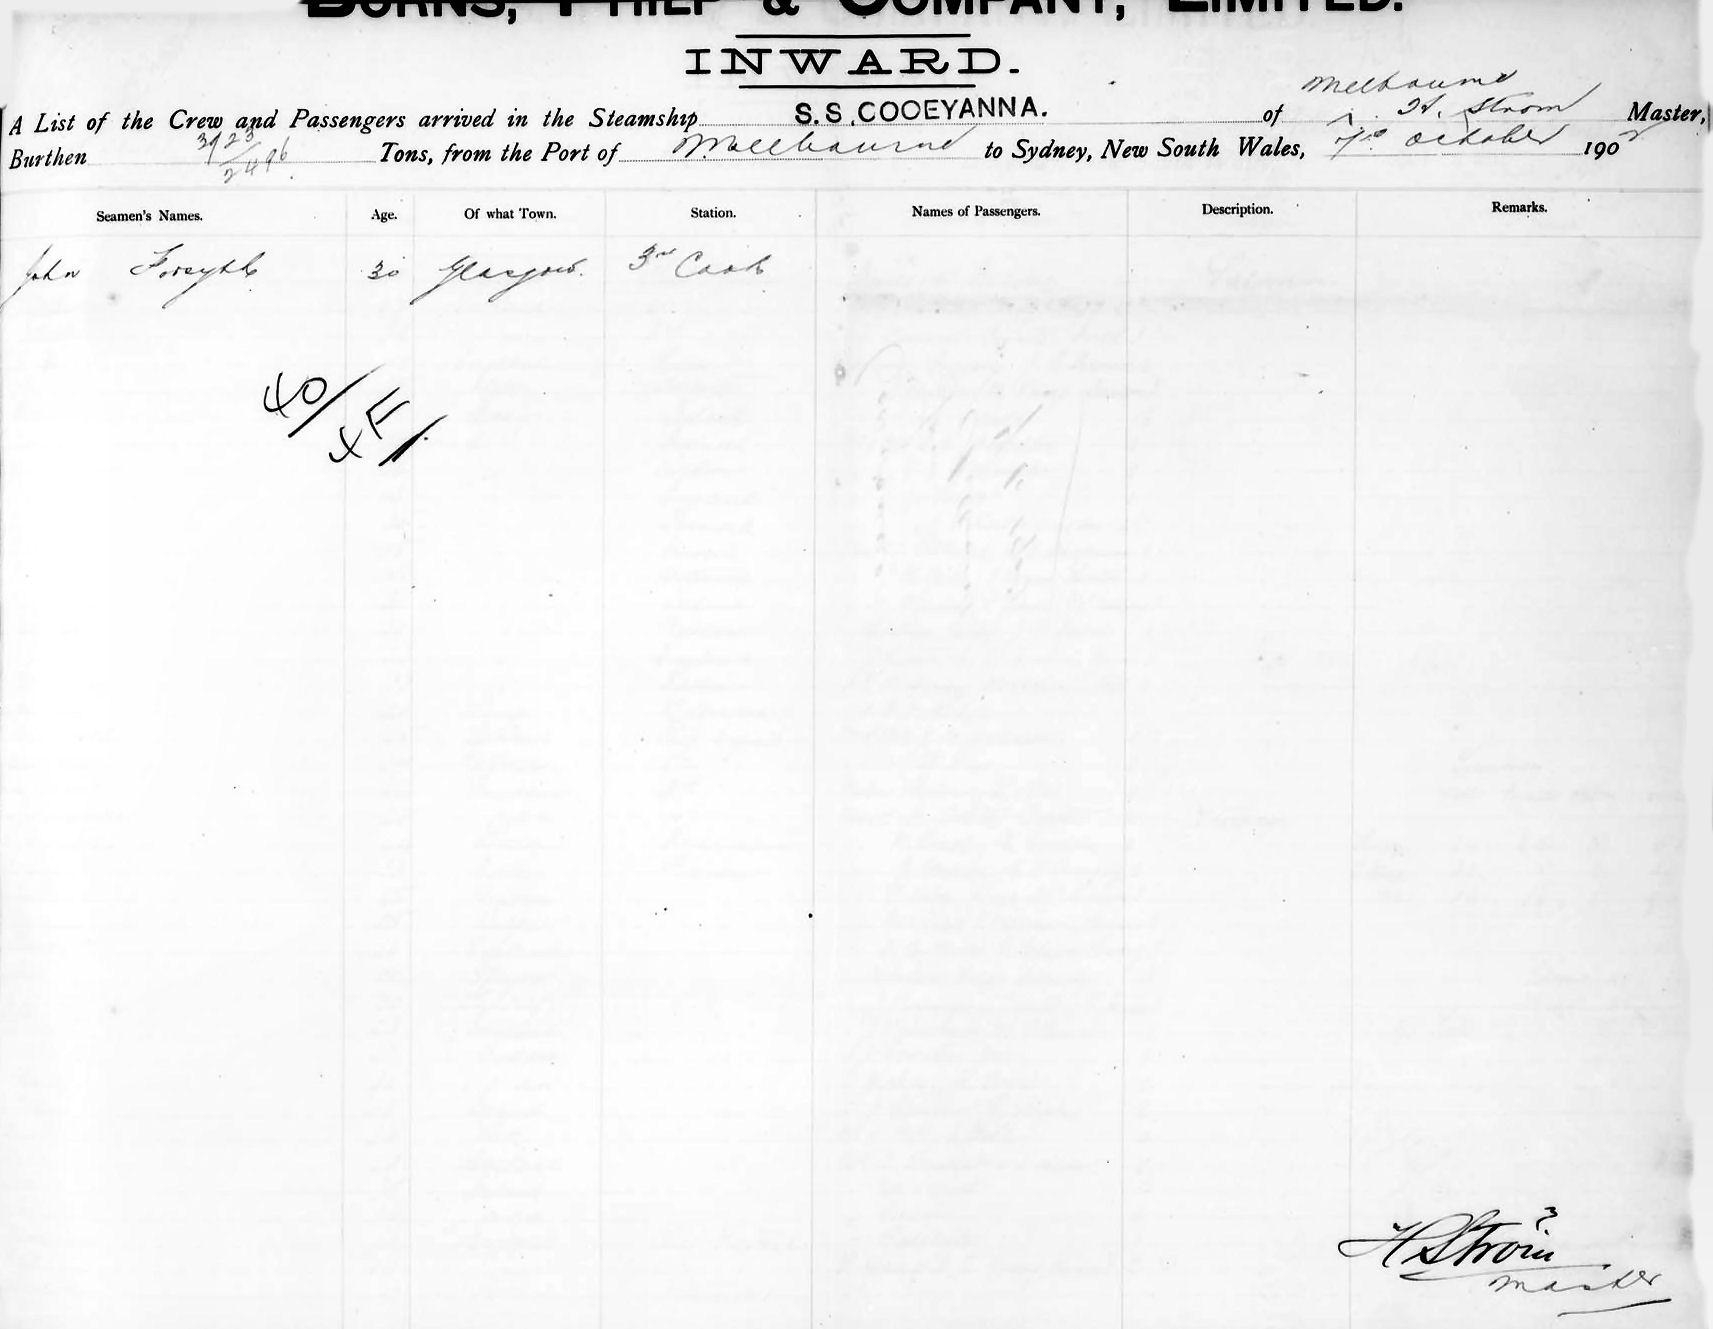 BURNS, PHILP & COMPANY, LIMITED.
INWARD.
Melbourne
A List of the Crew and Passengers arrived in the Steamship S.S. COOEYANNA. of H. Strom Master,
Burthen 3923/2496 Tons, from the Port of Melbourne to Sydney, New South Wales, 7th October 1902
Seamen's Names. Age. Of what Town. Station. Names of Passengers. Description. Remarks.
John Forsyth 30 Glasgow. 3rd Cook
H Strom
Master